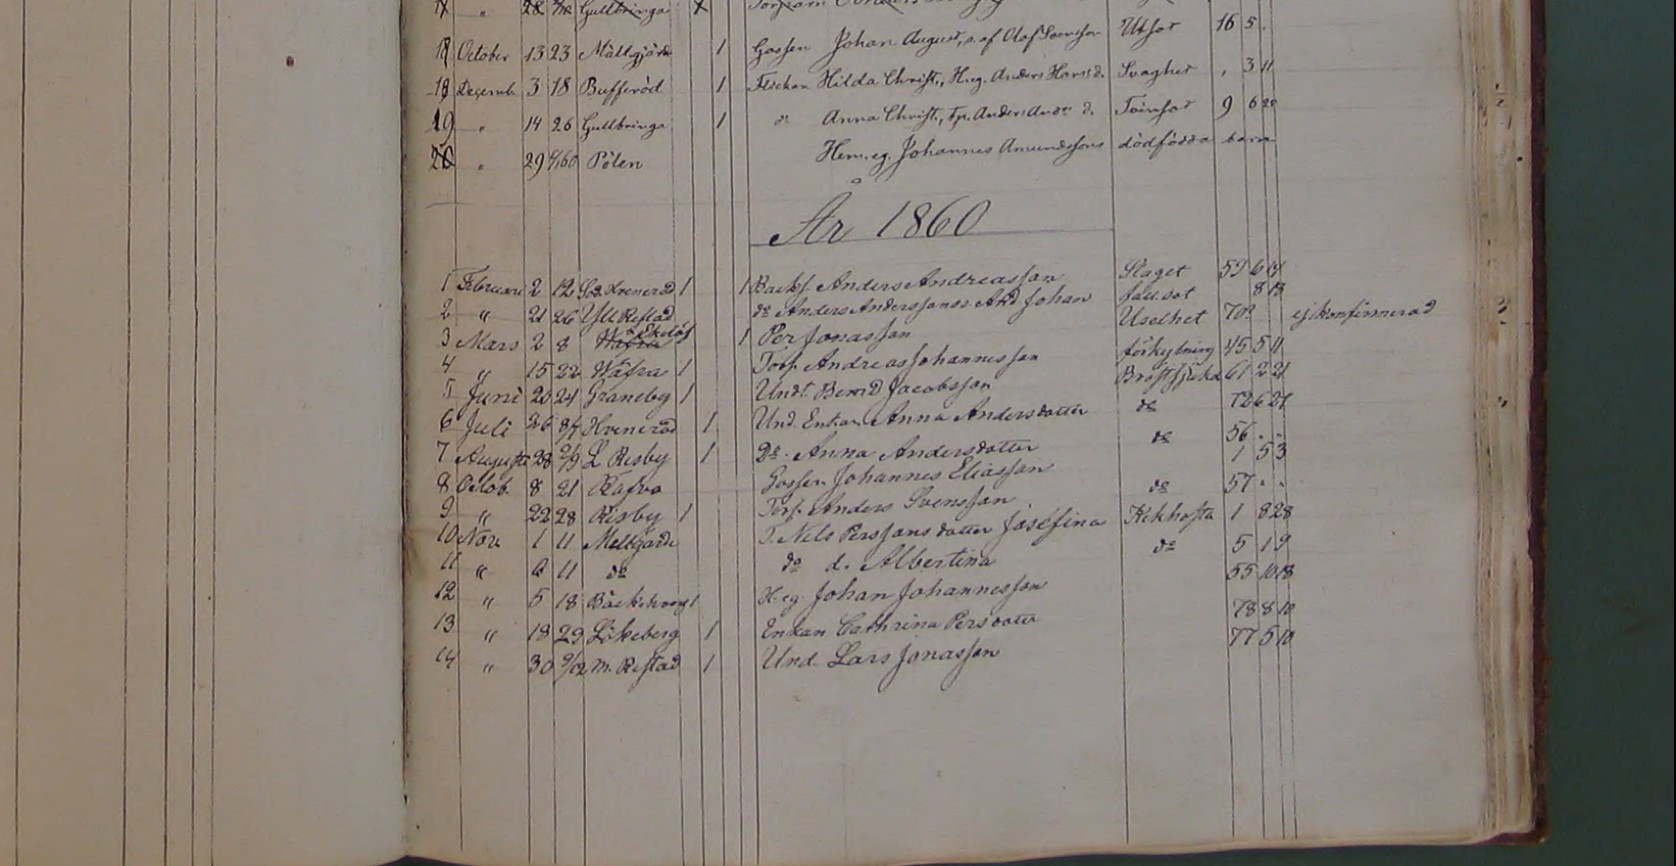 17 " 28 Gullbringa
18 October 13 23 Mältgjärde 1 Gossen Johan August, s. af Olof Svensson Utsot 16 5 .
18 Decemb. 3 18 Bufferöd 1 Flickan Hilda Christ., Hug. Anders Hans d. Svaghet , 3 11
19 " 14 26 Gullbringa 1 do Anna Christ., Tp. Anders And: d. Tvinsot 9 6 20
20 " 29 Pölen Hem. eg. Johannes Amundssons dödfödda barn
År 1860
1 Februari 2 12 Hveneröd 1 1 Backs. Anders Andreasson Slaget 59 6 14
2 " 21 26 Ytt Restad do Anders Anderssons And Johan 8 13
3 Mars 2 8 Ekelöf 1 Per Jonasson Uselhet 70 ej konfirmerad
4 " 15 22 Wäfra 1 Torp. Andreas Johannesson förkylning 45 5 11
5 Juni 20 24 Graneby 1 Undt. Bernd Jacobsson Bröstsjukd 61 2 21
6 Juli 26 8/7 Hveneröd 1 Und. Enkan Anna Andersdotter do 72 6 21
7 Augusti 28 2/9 L Resby 1 Do. Anna Andersdotter do 56 . .
8 Octob. 8 21 Gossen Johannes Eliasson 1 5 3
9 " 22 28 Risby 1 Torp. Anders Svensson do 57 . .
10 Nov. 1 11 Meltgärde T. Nils Perssons dotter Josefina Kikhosta 1 8 28
11 " 6 11 do do d. Albertina do 5 1 9
12 " 5 18 1 H. eg. Johan Johannesson 55 10 18
13 " 18 29 Lökeberg 1 Enkan Cathrina Persdotter 78 8 10
14 " 30 9/12 m. Restad 1 Und. Lars Jonasson 77 5 10